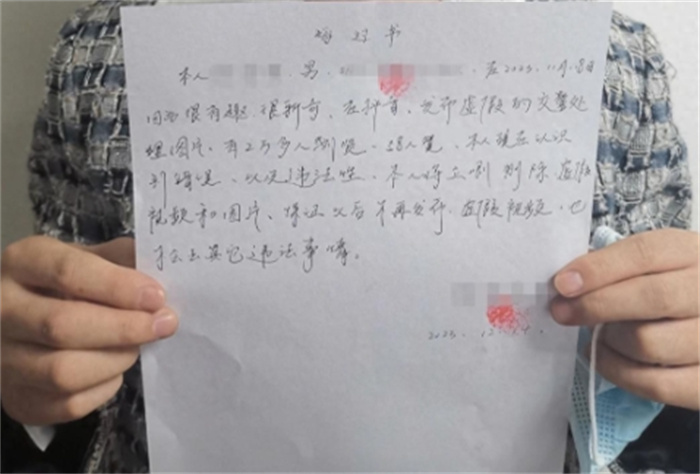 悔过书
本人 男, 在2023.11月.8日
因为很有趣 很新奇, 在抖音, 发布虚假的交警处
理图片, 有2万多人浏览, 人赞, 本人现在认识
到错误, 以及违法性, 本人将立刻删除虚假
视频和图片, 保证以后不再发布, 虚假视频, 也
不会去其它违法事情。
2023. 12.